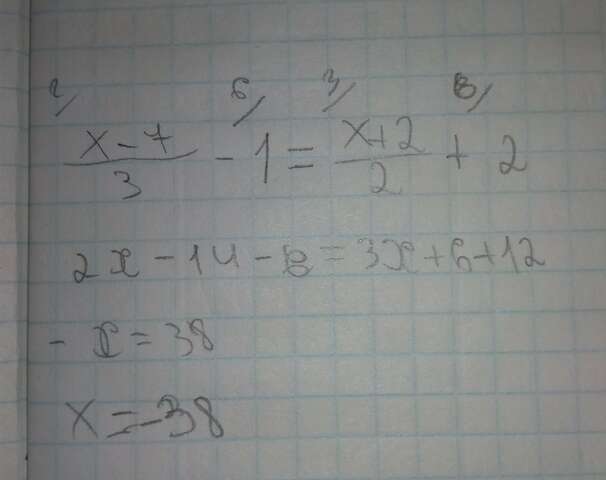 2/ 6/ 3/ 6/
x-7/3 - 1 = x+2/2 + 2
2x - 14 - 6 = 3x + 6 + 12
- x = 38
x = -38